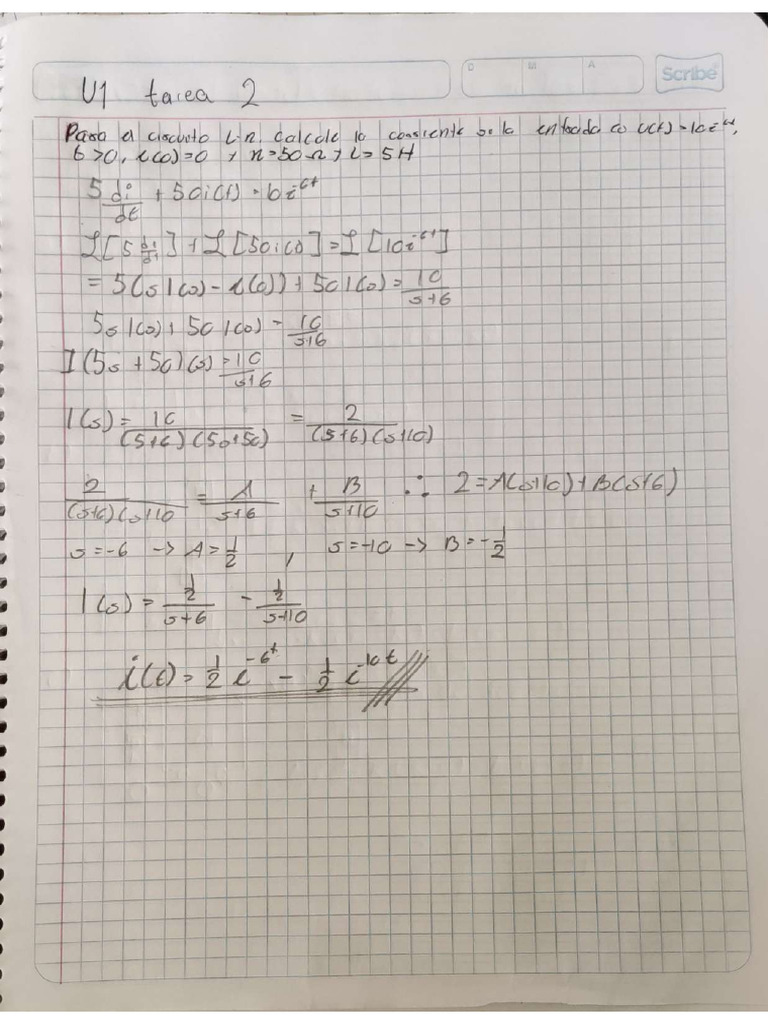 Scribe
D M A
U1 tarea 2
Para el circuito L-R calcule la corriente si la entrada es u(t) = 10e^-6t,
t>0, i(0)=0 y R=50Ω y L=5H
5 di/dt + 50i(t) = 10e^-6t
ℒ[5 di/dt] + ℒ[50i(t)] = ℒ[10e^-6t]
= 5(sI(s) - i(0)) + 50I(s) = 10/(s+6)
5sI(s) + 50I(s) = 10/(s+6)
I(5s+50)(s) = 10/(s+6)
I(s) = 10/((s+6)(5s+50)) = 2/((s+6)(s+10))
2/((s+6)(s+10) = A/(s+6) + B/(s+10) ∴ 2=A(s+10)+B(s+6)
s=-6 -> A=1/2 , s=-10 -> B=-1/2
I(s) = 1/2/(s+6) - 1/2/(s+10)
i(t) = 1/2 e^-6t - 1/2 e^-10t